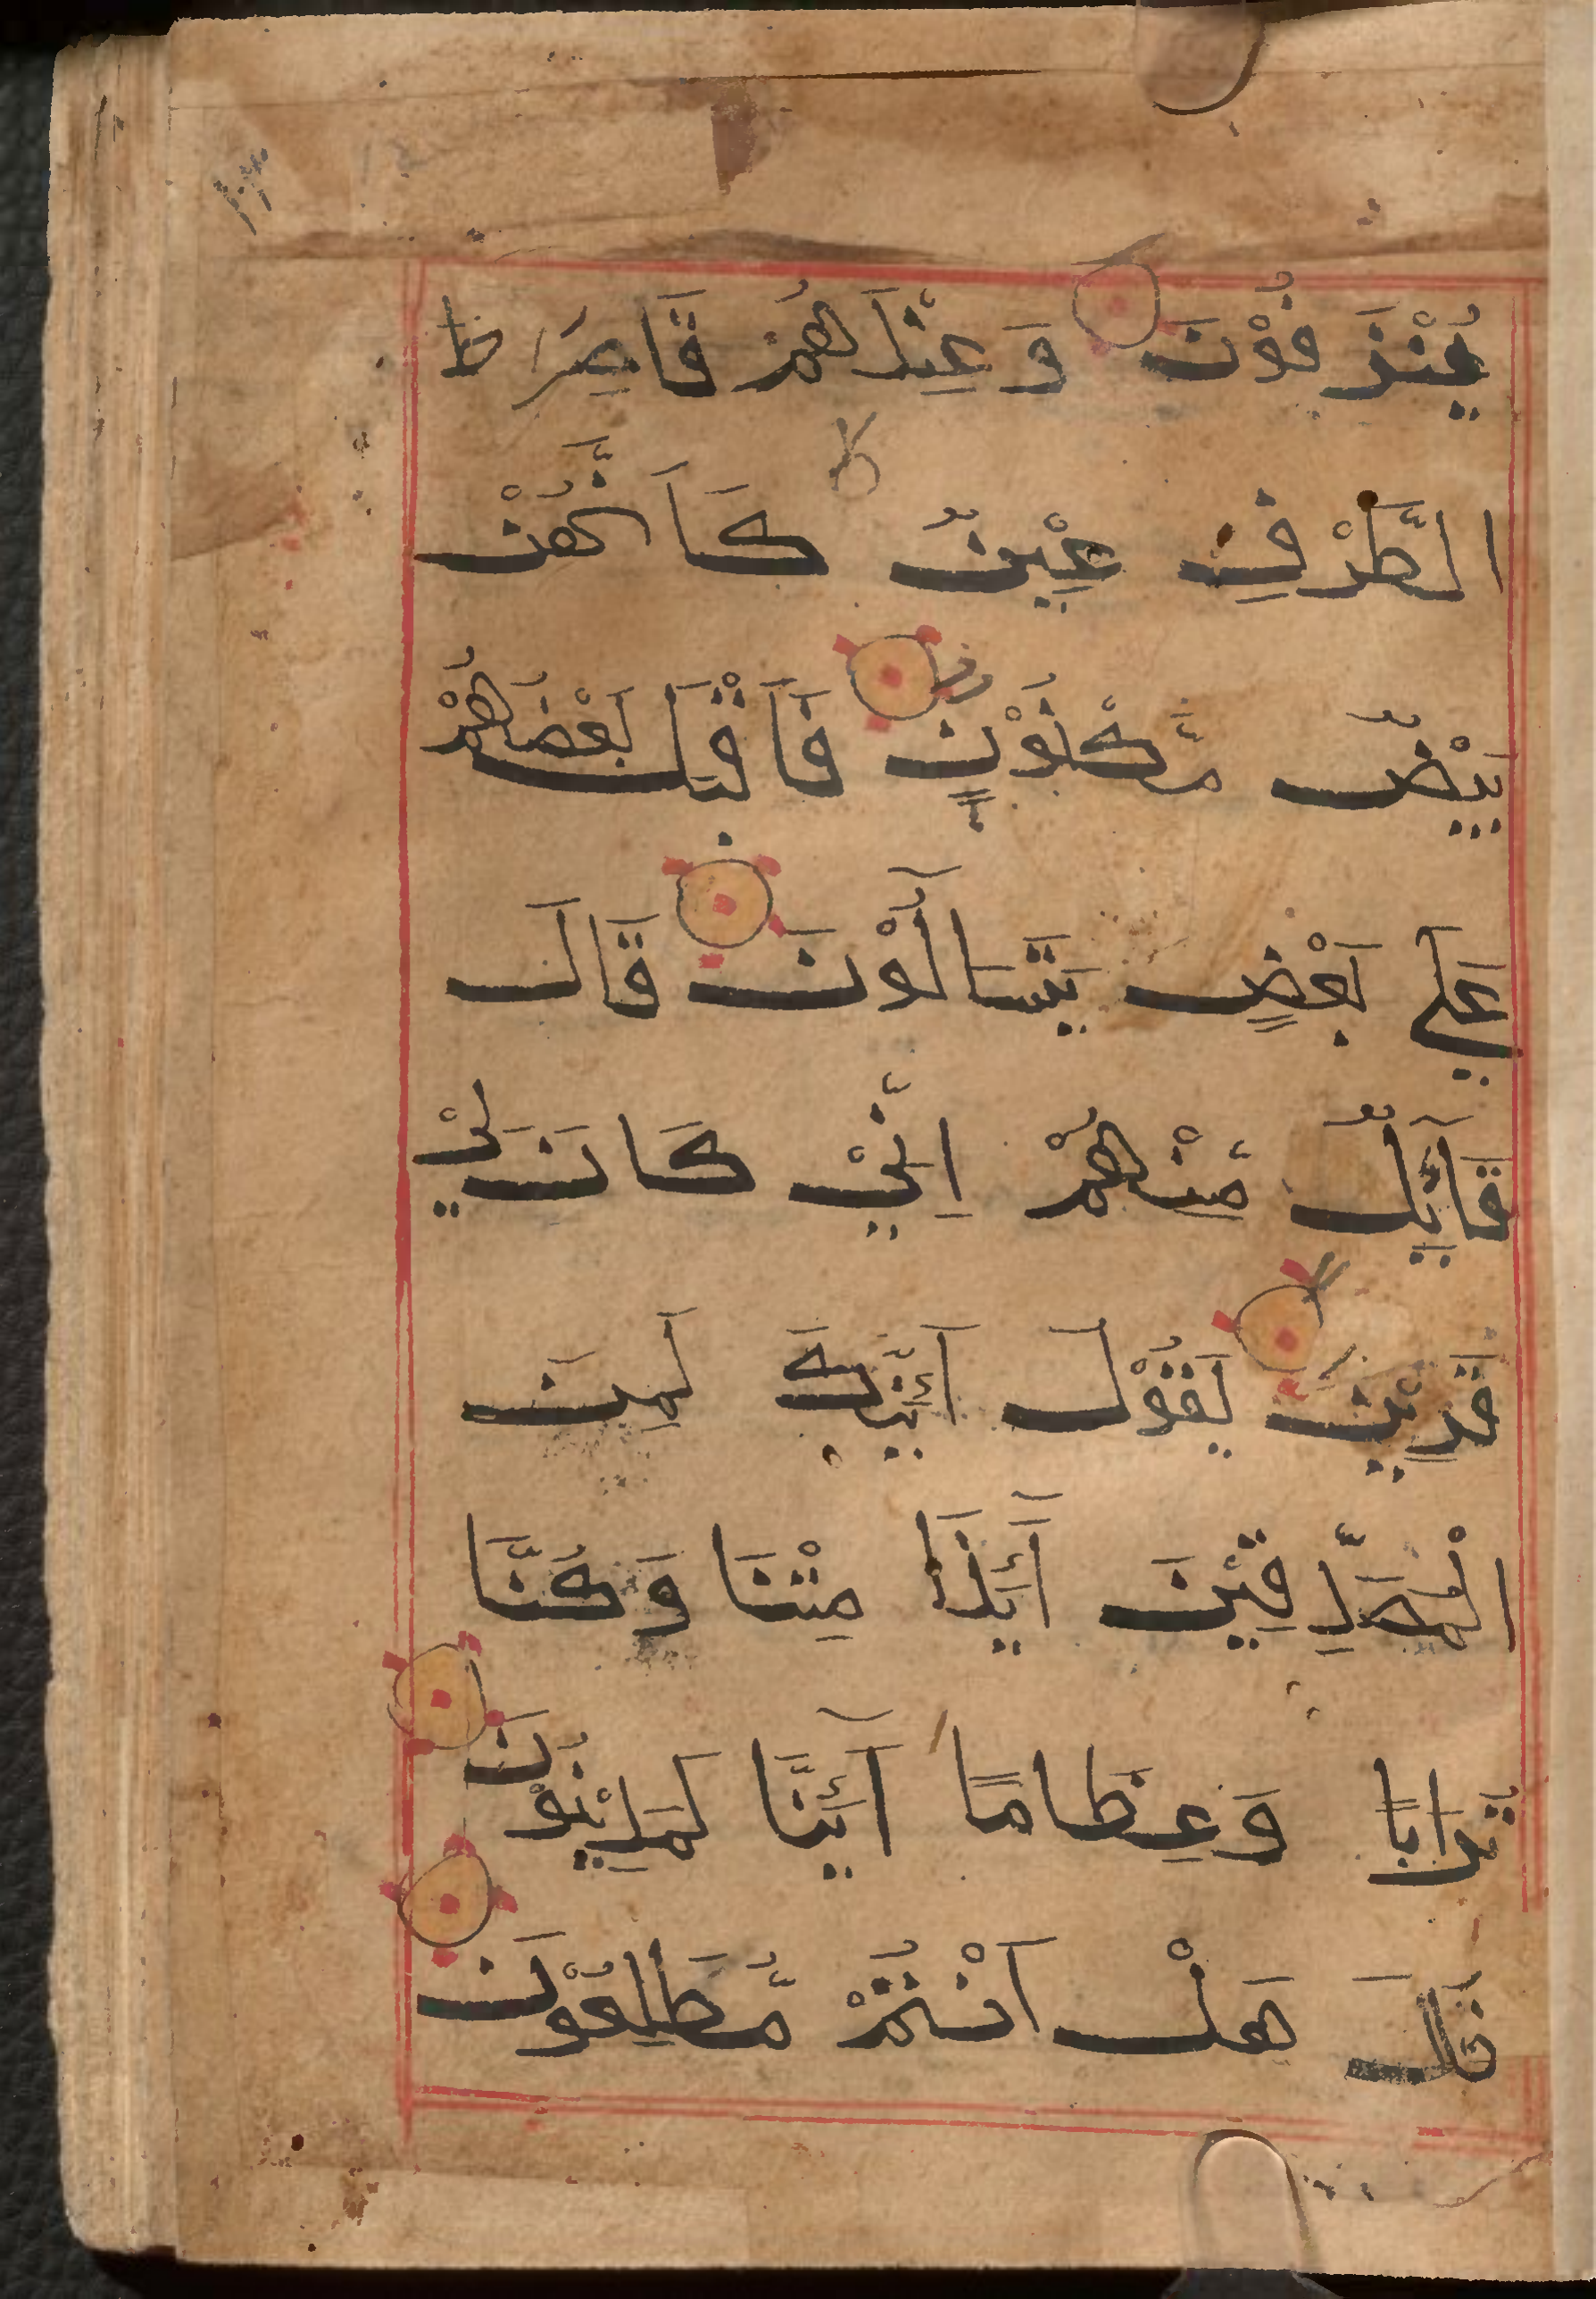 يُنْزَفُوْنَ وَعِنْدَهُمْ قَاصِرَاتُ
الطَّرْفِ عِيْنٌ كَاَنَّهُنَّ
بَيْضٌ مَّكْنُوْنٌ فَاَقْبَلَ بَعْضُهُمْ
عَلٰي بَعْضٍ يَّتَسَآءَلُوْنَ قَالَ
قَآئِلٌ مِّنْهُمْ اِنِّيْ كَانَ لِيْ
قَرِيْنٌ يَّقُوْلُ اَئِنَّكَ لَمِنَ
الْمُصَدِّقِيْنَ اَئِذَا مِتْنَا وَكُنَّا
تُرَابًا وَعِظَامًا اَئِنَّا لَمَدِيْنُوْنَ
قَالَ هَلْ اَنْتُمْ مُّطَّلِعُوْنَ